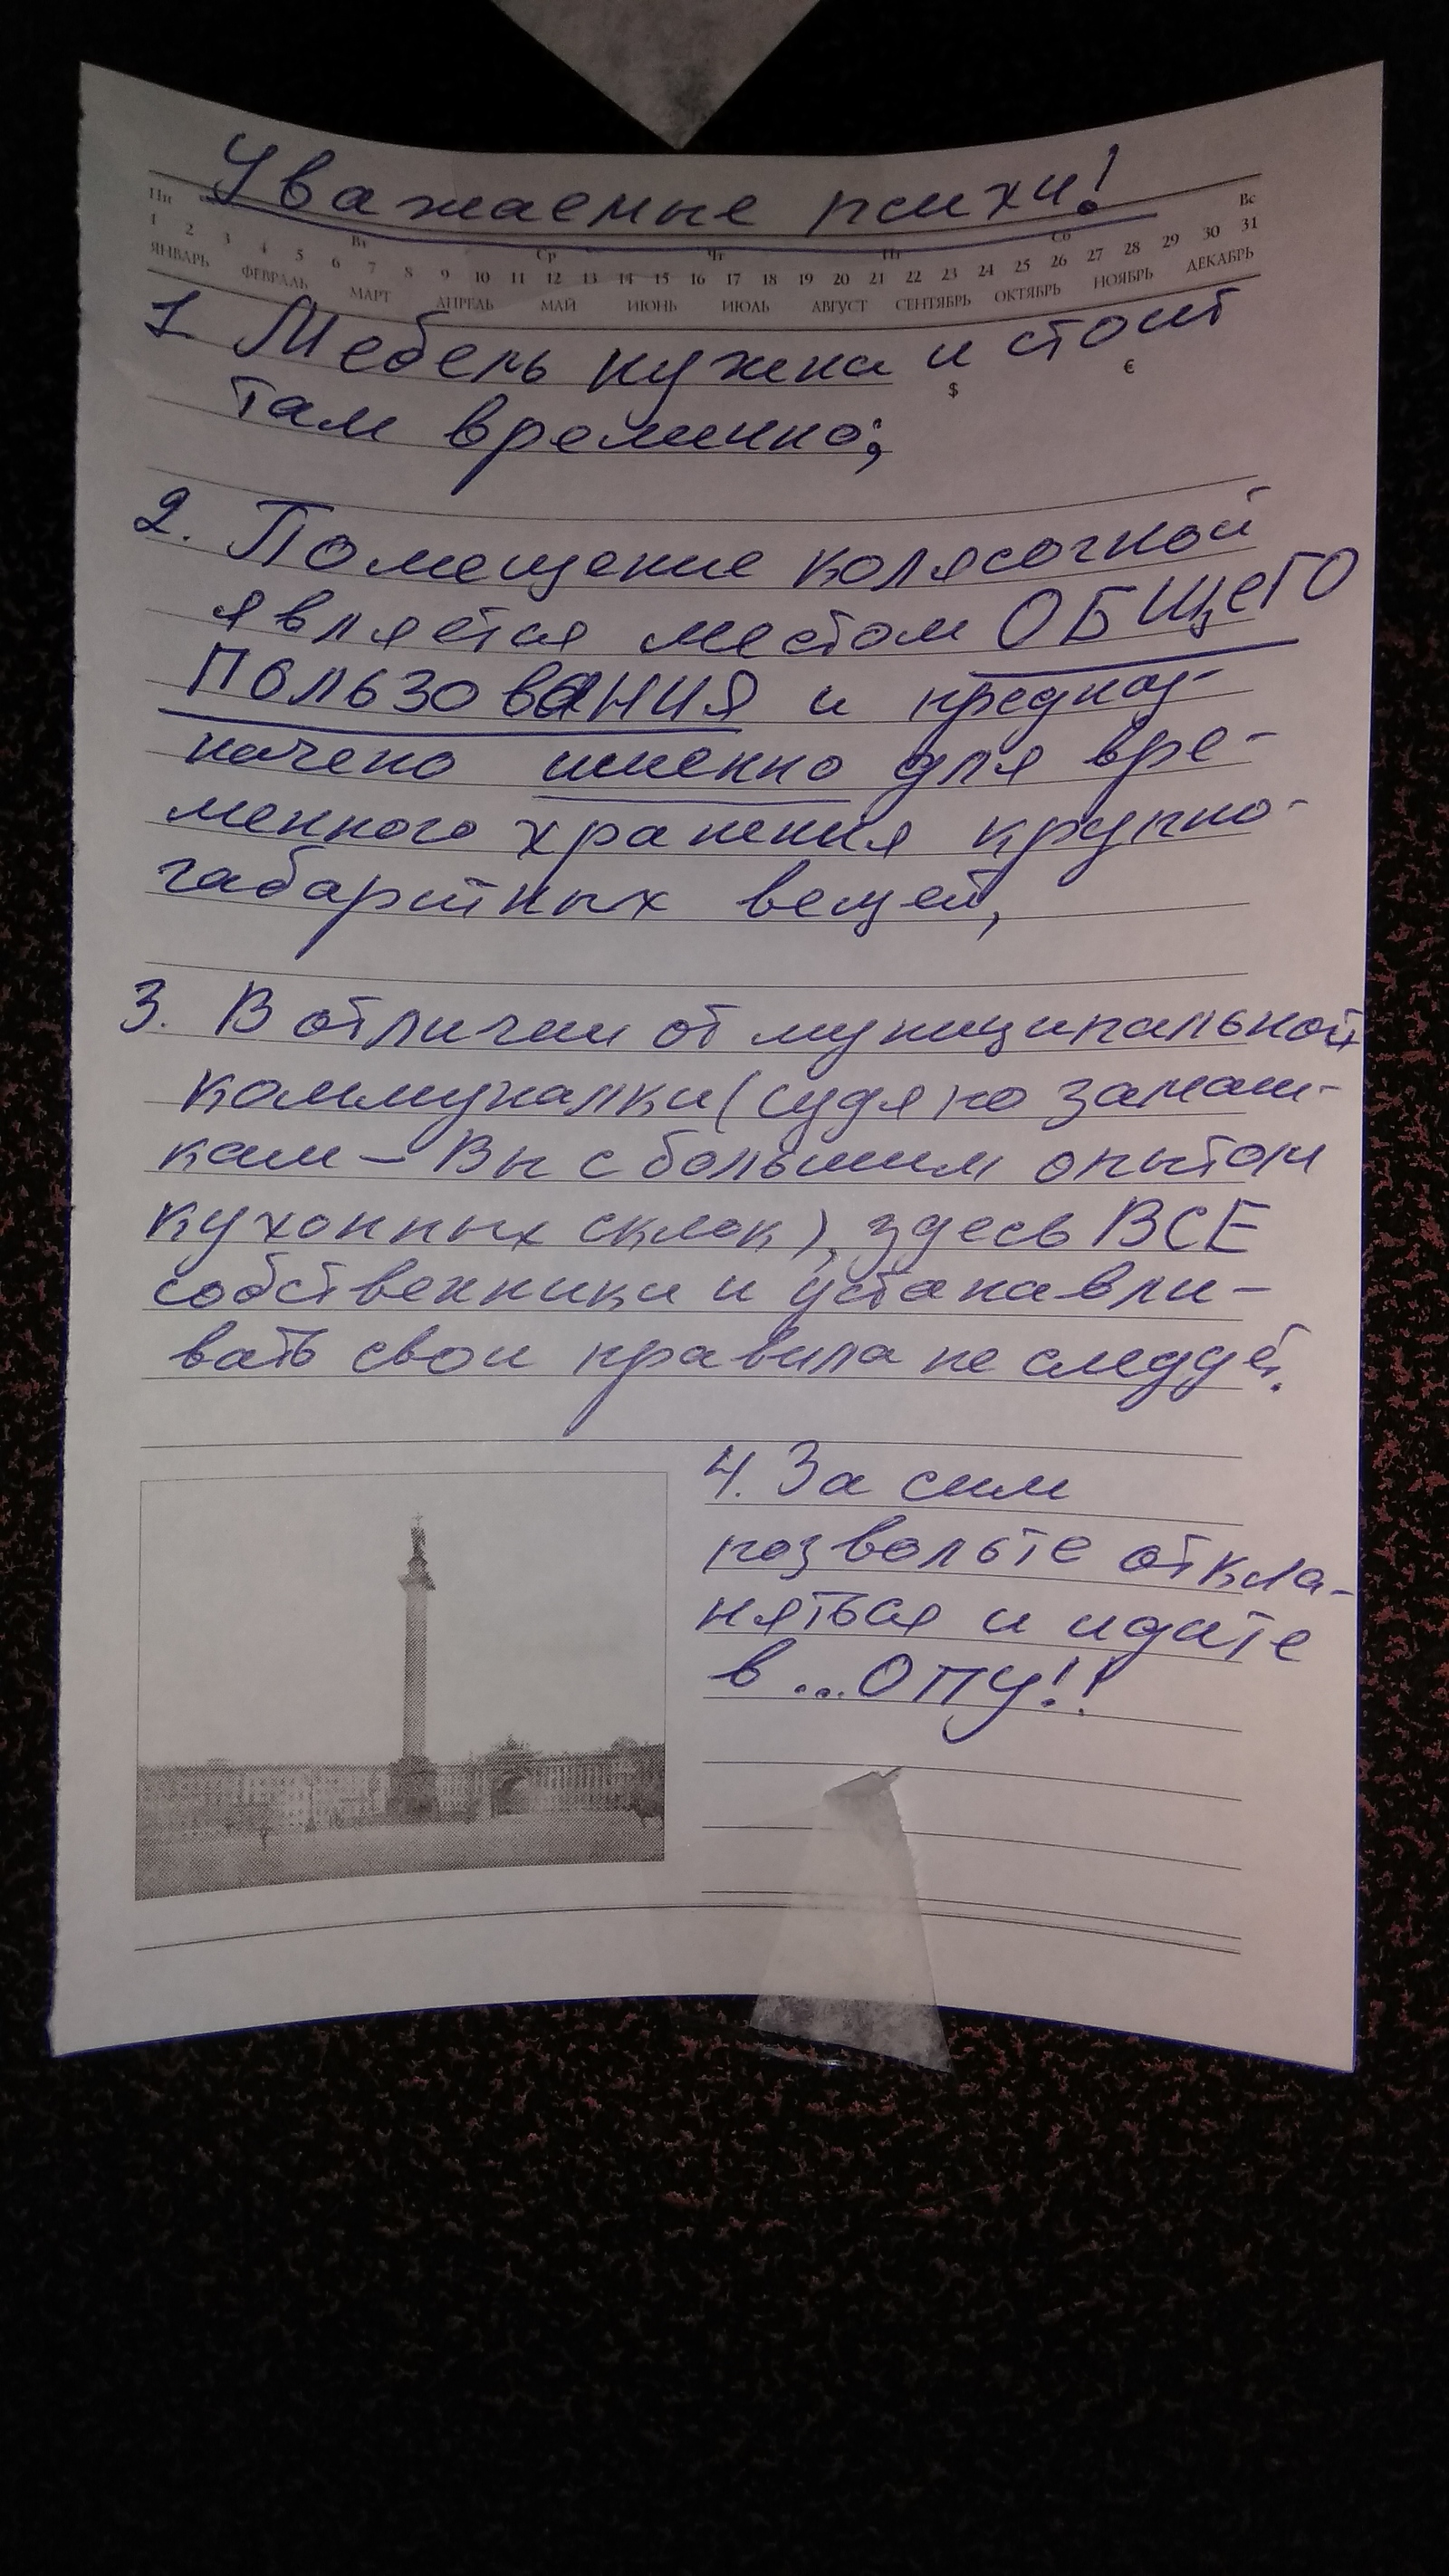 Уважаемые психи!
Пн Вт Ср Чт Пт Сб Вс
1 2 3 4 5 6 7 8 9 10 11 12 13 14 15 16 17 18 19 20 21 22 23 24 25 26 27 28 29 30 31
ЯНВАРЬ ФЕВРАЛЬ МАРТ АПРЕЛЬ МАЙ ИЮНЬ ИЮЛЬ АВГУСТ СЕНТЯБРЬ ОКТЯБРЬ НОЯБРЬ ДЕКАБРЬ
1 Мебель нужна и стоит
$ €
там временно;
2. Помещение колясочной
является местом ОБЩЕГО
ПОЛЬЗОВАНИЯ и предназ-
начено именно для вре-
менного хранения крупно-
габаритных вещей,
3. В отличии от муниципальной
коммуналки (судя по замаш-
кам – Вы с большим опытом
кухонных склок), здесь ВСЕ
собственники и устанавли-
вать свои правила не следует.
4. За сим
позвольте откла-
няться и идите
в ...ОПУ!!